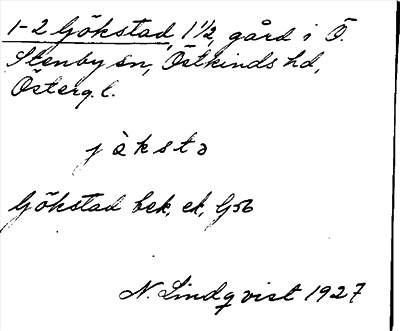 1-2 Gökstad, 1 1/2, gård i Ö.
Stenby sn, Östkinds hd,
Österg. l.
jökstə
Gökstad bek, ek, Gsb
N. Lindqvist 1927